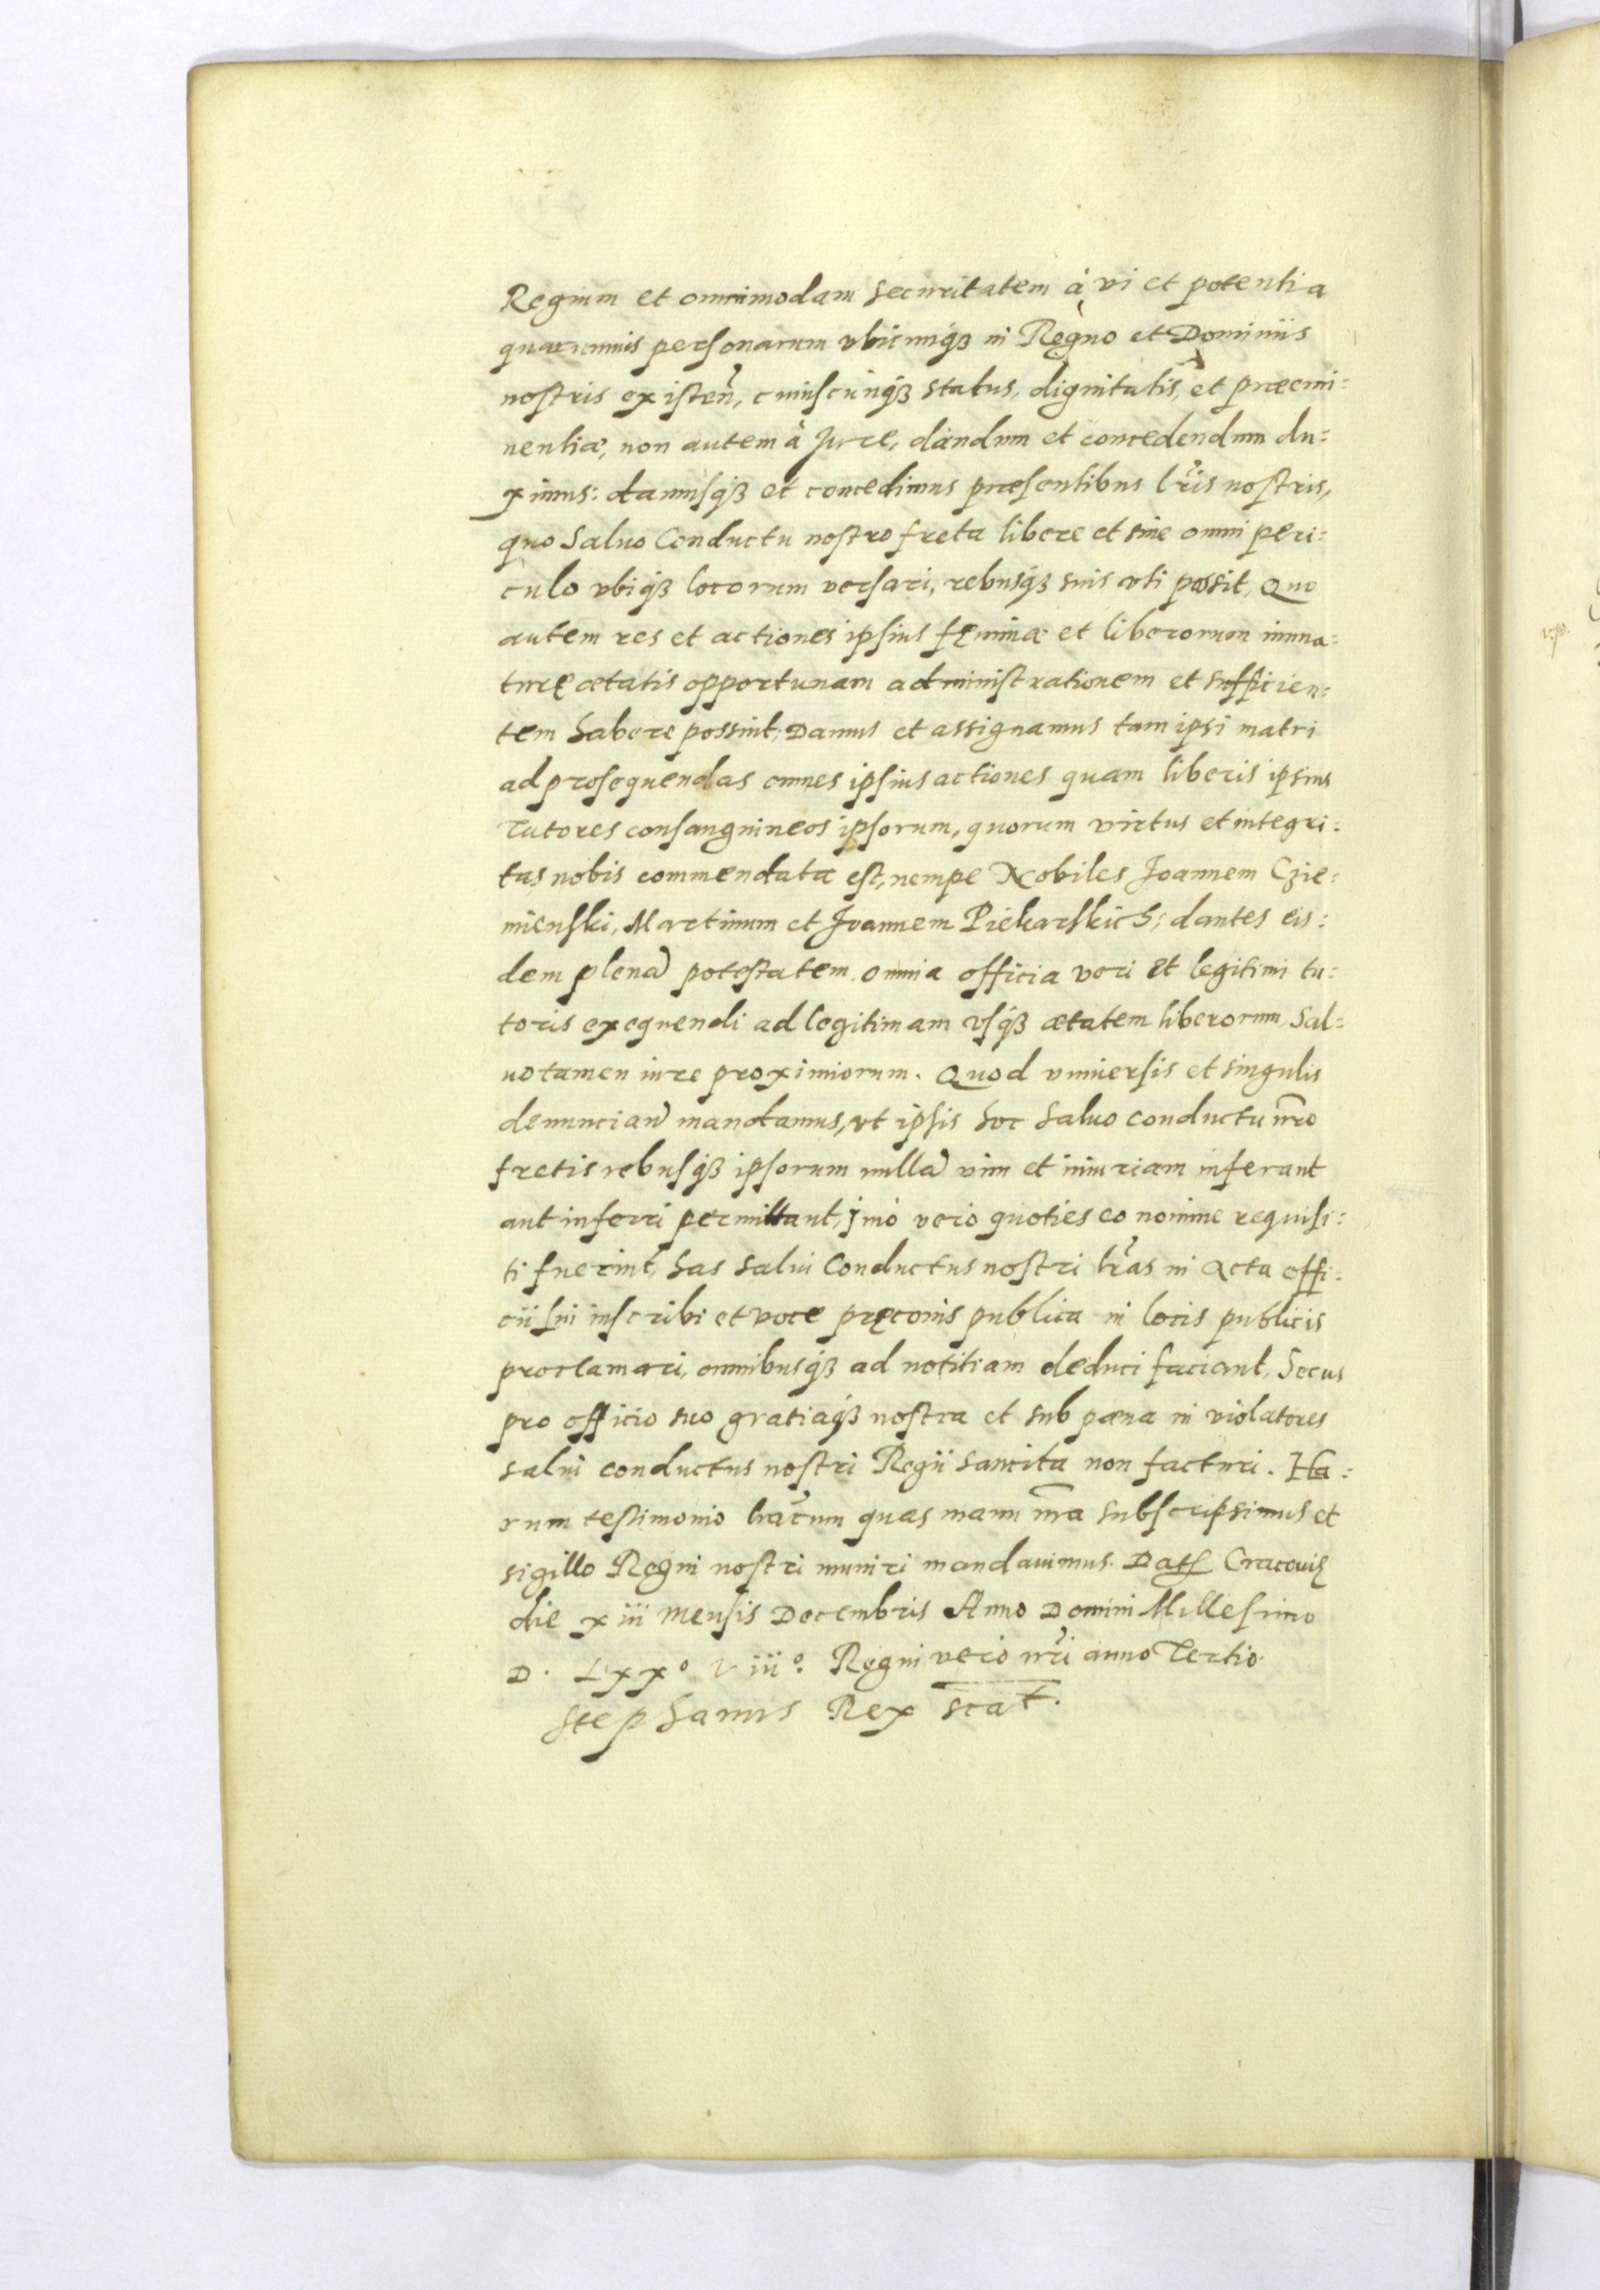 Regium et omnimodam securitatem à vi et potentia
quarumuis personarum vbicunq₃ in Regno et Dominiis
nostris existen̄, cuiuscunq₃ status, dignitatis, et præemi:
nentiæ, non autem à Jure, dandum et concedendum du:
ximus: damusq₃ et concedimus præsentibus lr̄is nostris,
quo Saluo Conductu nostro freta libere et sine omni peri:
culo vbiq₃ locorum versari, rebusq₃ suis vti possit, Quo
autem res et actiones ipsius fęminæ et liberorum imma:
turę ætatis opportunam administrationem et sufficien:
tem habere possint; Damus et assignamus tam ipsi matri
ad prosequendas omnes ipsius actiones quam liberis ipsius
Tutores consanguineos ipsorum, quorum virtus et integri:
tas nobis commendata est, nempe Nobiles Joannem Czie:
mienski, Martinum et Joannem Piekarskich; dantes eis:
dem plenā potestatem omnia officia veri et legitimi tu:
toris exequendi ad legitimam vsq₃ ætatem liberorum, Sal:
uo tamen iure proximiorum. Quod vniuersis et singulis
denunciarī mandamus, vt ipsis hoc Saluo conductu nr̄o
fretis rebusq₃ ipsorum nullā vim et iniuriam inferant
aut inferri permittant, jmò vero quoties eo nomine requisi:
ti fuerint, has salui Conductus nostri lr̄as in Acta offi:
cii sui inscribi et voce pręconis publica in locis publicis
proclamari, omnibusq₃ ad notitiam deduci faciant, Secus
pro officio suo gratiaq₃ nostra et sub pæna in violatores
salui conductus nostri Regii sancita non facturi. Ha:
rum testimonio lr̄arum quas manu nr̄a subscripsimus et
sigillo Regni nostri muniri mandauimus. Dat̄ Cracouię
die xiii mensis Decembris Anno Domini Millesimo
D. Lxxº Viiiº. Regni vero nr̄i anno Tertio.
Stephanus Rex scat̄.